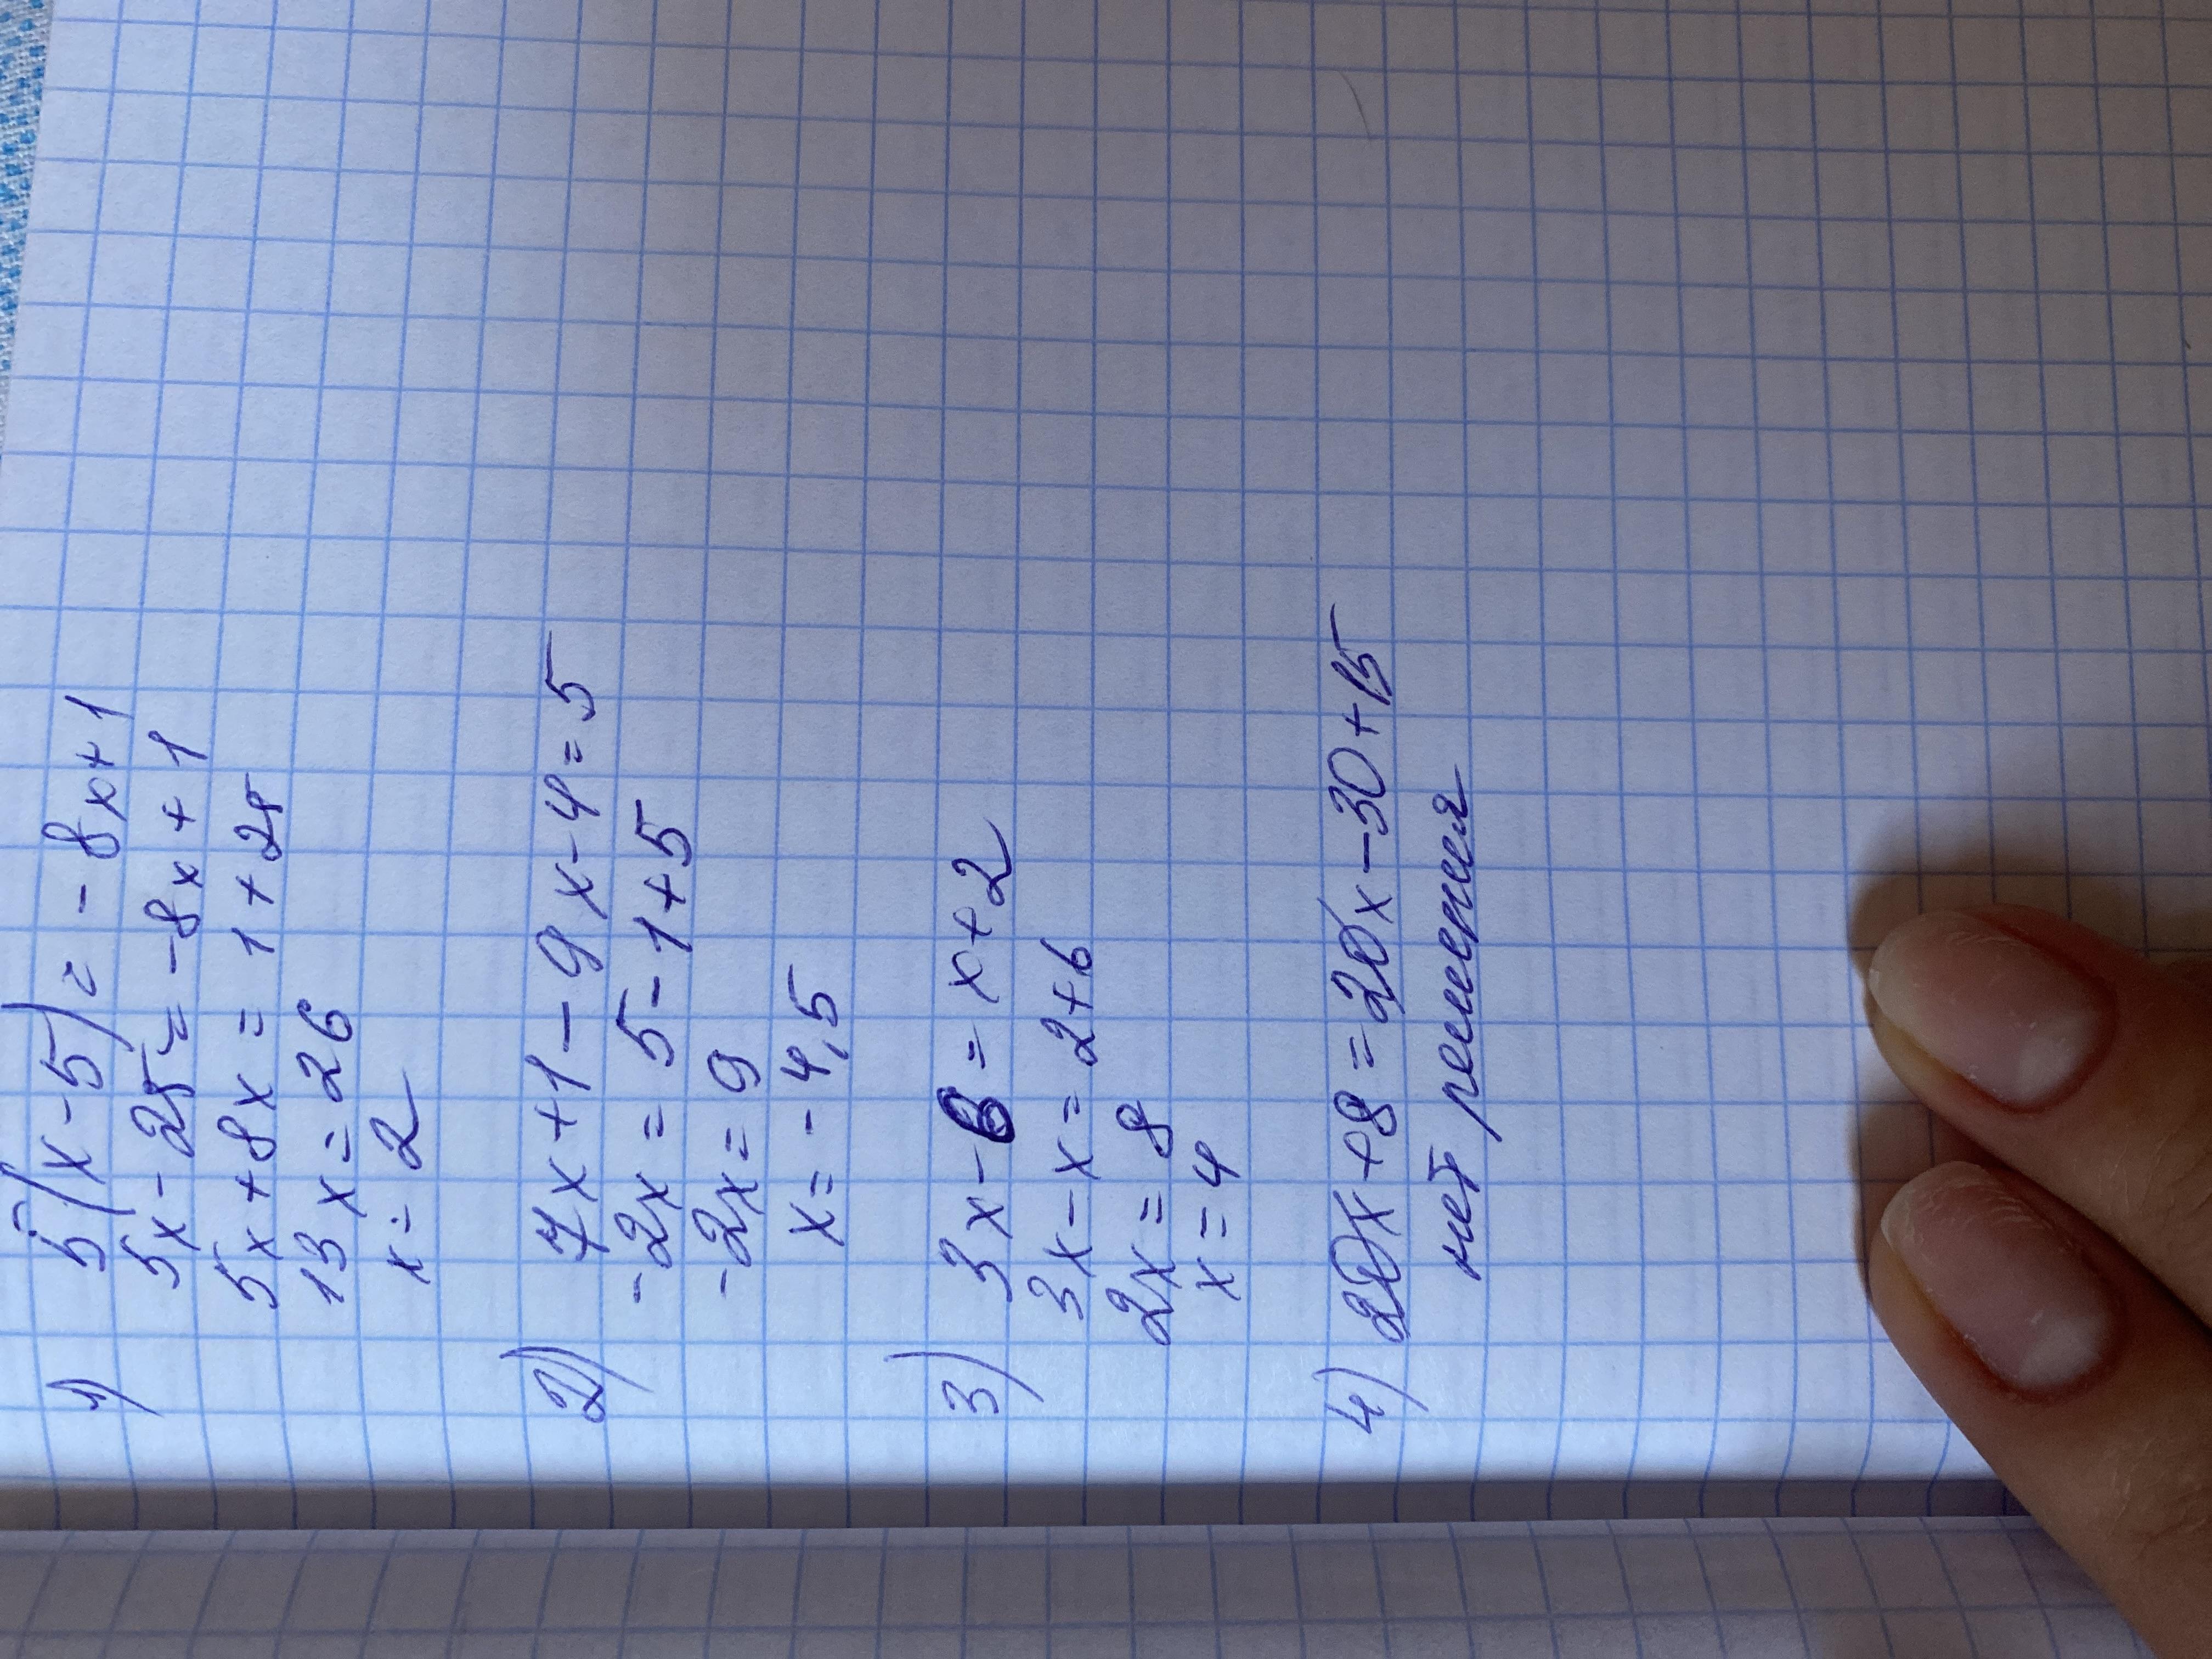 1) 5(x-5) = -8x+1
5x-25 = -8x+1
5x+8x = 1+25
13x = 26
x = 2
2) 7x+1-9x-4 = 5
-2x = 5-1+5
-2x = 9
x = -4,5
3) 3x-6 = x+2
3x-x = 2+6
2x = 8
x = 4
4) 20x+8 = 20x-30+15
нет решения